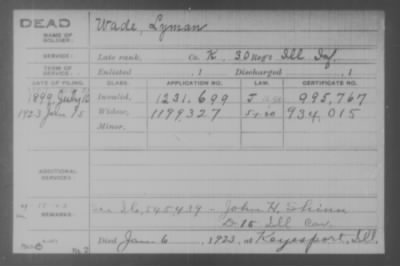 DEAD
Wade, Lyman
NAME OF SOLDIER:
SERVICE: Late rank, Co. K, 30 Reg't Ill Inf.
TERM OF SERVICE: Enlisted , 1 Discharged , 1
DATE OF FILING. CLASS. APPLICATION NO. LAW. CERTIFICATE NO.
1899 July Invalid, 1231.699 995,767
1923 Jan Widow, 1199327 934,015
Minor,
ADDITIONAL SERVICES:
REMARKS: 545439 - John H. Shinn
D 15 Ill Cav.
Died Jan 6, 1923, at Keyesport, Ill.
No. 2